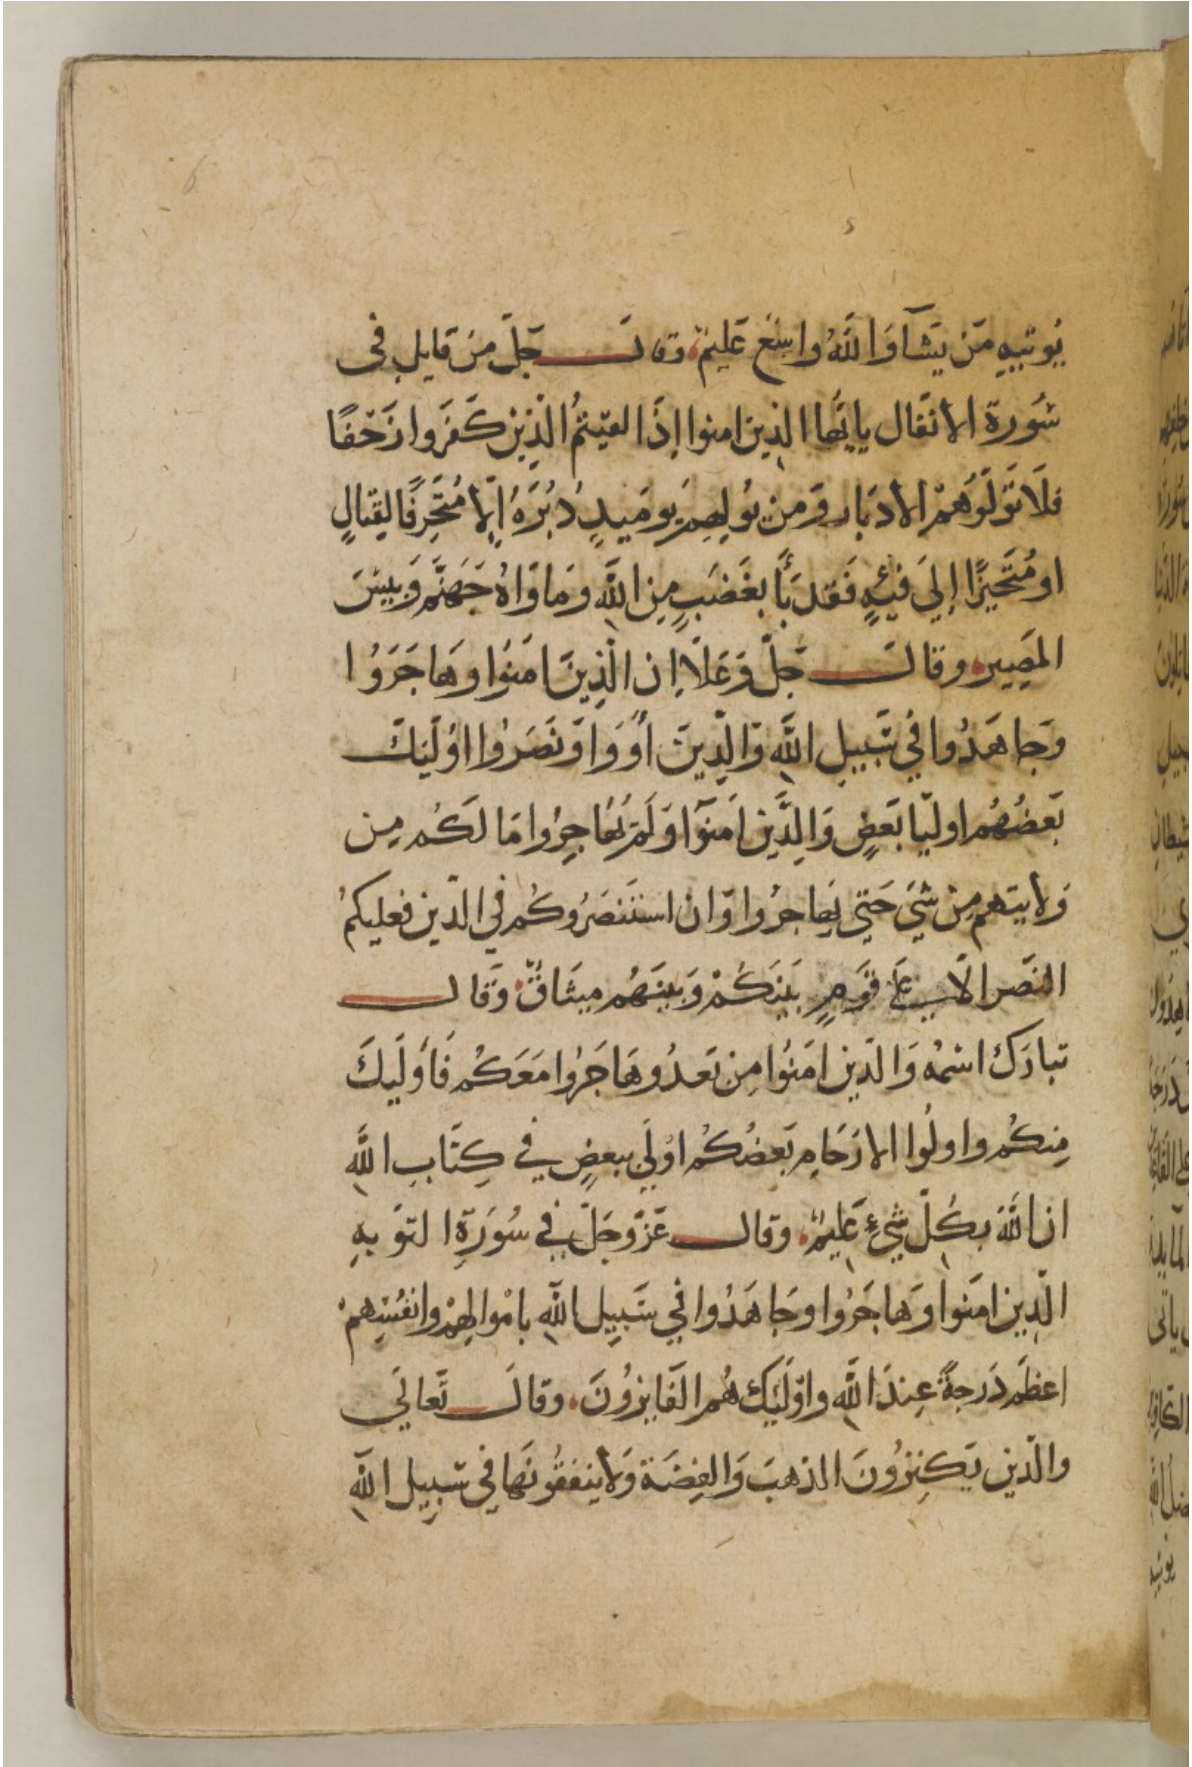 يُوتيهِ مَن يَشآ وَاللَّهُ واسِعٌ عَليمٌ، وقالَ جَلَّ مِن قايلٍ في
سُورة الأنفَال يايّهَا الذِين امنوا إذَا لقيتمُ الَّذِينَ كَفَروا زَحفًا
فلَا تَوَلّوهُمْ الأدبَار وَمن يُولهِم يَوميذٍ دُبُرَهُ إلّا مُتَحَرِفًا لِقِتالٍ
او مُتَحَيّزًا إليَ فيةٍ فَقد بَأَ بغَضَبٍ مِن اللَّهِ وَماوَاهُ جَهَنَّم وَبيسَ
المَصِير، وقالَ جَلّ وَعَلَا إن الَّذِينَ امَنوُا وهَاجَرَوُا
وَجاهَدُوا في سَبيلِ اللَّهِ وَالَّذِينَ أوَوا وَنَصَرُوا اوُلَيكَ
بَعضُهُم اوليَا بَعَضٍ وَالِذَّين اَمنوَا وَلَمَ يُهَاجِرُوا مَا لَكُم مِن
وَلَايتهم مِن شَي حَتي يُهاجرُوا وَان استَنصَرُوكُم في الدّين فعليكمُ
النَصَر الّا علَي قَومٍ بَينَكُمْ وَبَينَهُم ميثَاقٌ، وَقَال
تبارَكَ اسمُه وَالذَين امَنوُا مِن بَعدُ وهَاجَرُوا مَعَكُم فَاُولَيكَ
مِنكُم واولُوا الارَحَامِ بَعضُكُم اوْلَي ببعضٍ في كِتَابِ اللَّهِ
ان اللَّهَ بكُلّ شيءٍ عَليمٌ، وقال عَزَّ وجَلّ في سُورَةِ التوَبةِ
الَّذِين امَنوا وَهاجَرُوا وجَاهَدُوا في سَبِيل اللَّهِ بامْوالهِمْ وانفُسِهمْ
اعظَم دَرجةً عِندَ اللَّهِ واوَلَيكَ هُم الفَايزوُنَ، وقالَ تَعالَي
والذّين يَكنِزُونَ الذهبَ وَالفِضَة وَلا ينفقُونَها في سَبيِلِ اللَّهِ